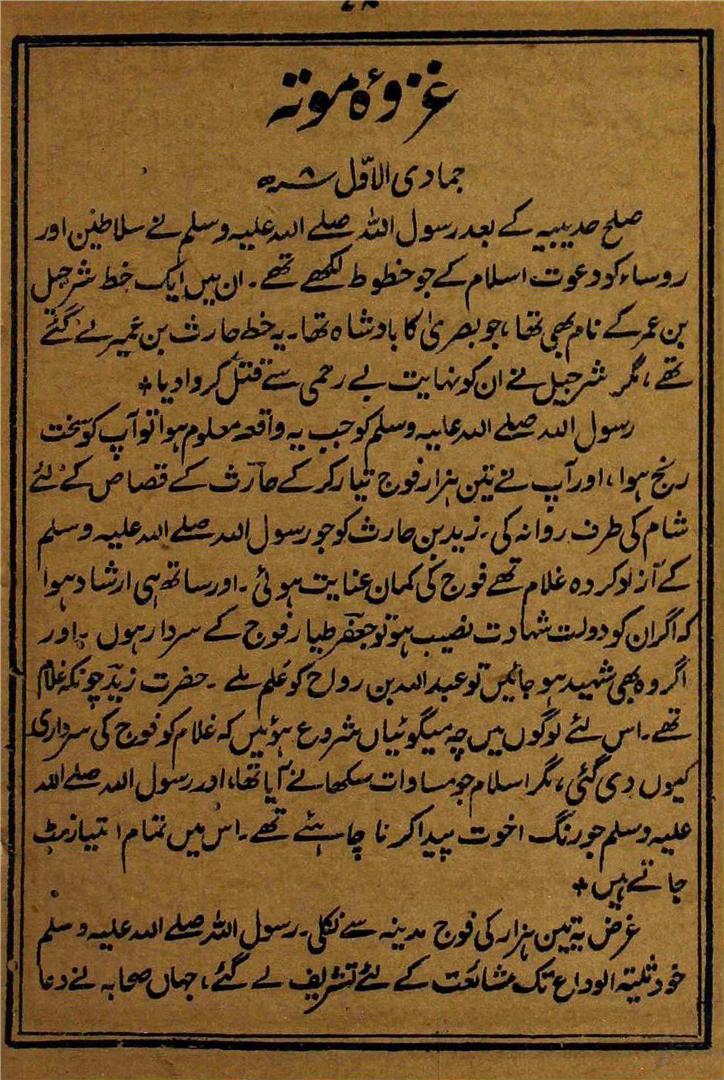 غزوۂ موتہ
جمادی الاوّل ۸ ھ
صلح حدیبیہ کے بعد رسول اللہ صلے اللہ علیہ وسلم نے سلاطین اور
روساء کو دعوت اسلام کے جو خطوط لکھے تھے۔ ان میں ایک خط شرجیل
بن عمر کے نام بھی تھا، جو بصریٰ کا بادشاہ تھا۔ یہ خط حارث بن عمیر لے گئے
تھے، مگر شرجیل نے ان کو نہایت بے رحمی سے قتل کروا دیا ٭
رسول اللہ صلے اللہ علیہ وسلم کو جب یہ واقعہ معلوم ہوا تو آپ کو سخت
رنج ہوا، اور آپ نے تین ہزار فوج تیار کر کے حارث کے قصاص کے لئے
شام کی طرف روانہ کی۔ زید بن حارث کو جو رسول اللہ صلے اللہ علیہ وسلم
کے آزاد کردہ غلام تھے فوج کی کمان عنایت ہوئی۔ اور ساتھ ہی ارشاد ہوا
کہ اگر ان کو دولت شہادت نصیب ہو تو جعفر طیار فوج کے سردار ہوں ۔ اور
اگر وہ بھی شہید ہو جائیں تو عبد اللہ بن رواح کو عَلم ملے ۔ حضرت زید چونکہ غلام
تھے۔ اس لئے لوگوں میں چہ میگوئیاں شروع ہوئیں کہ غلام کو فوج کی سرداری
کیوں دی گئی، مگر اسلام جو مساوات سکھانے آیا تھا، اور رسول اللہ صلے اللہ
علیہ وسلم جو رنگ اخوت پیدا کرنا چاہتے تھے۔ اس میں تمام امتیاز مٹ
جاتے ہیں ٭
غرض یہ تین ہزار کی فوج مدینہ سے نکلی۔ رسول اللہ صلے اللہ علیہ وسلم
خود ثنیتہ الوداع تک مشائعت کے لئے تشریف لے گئے، جہاں صحابہ نے دعا